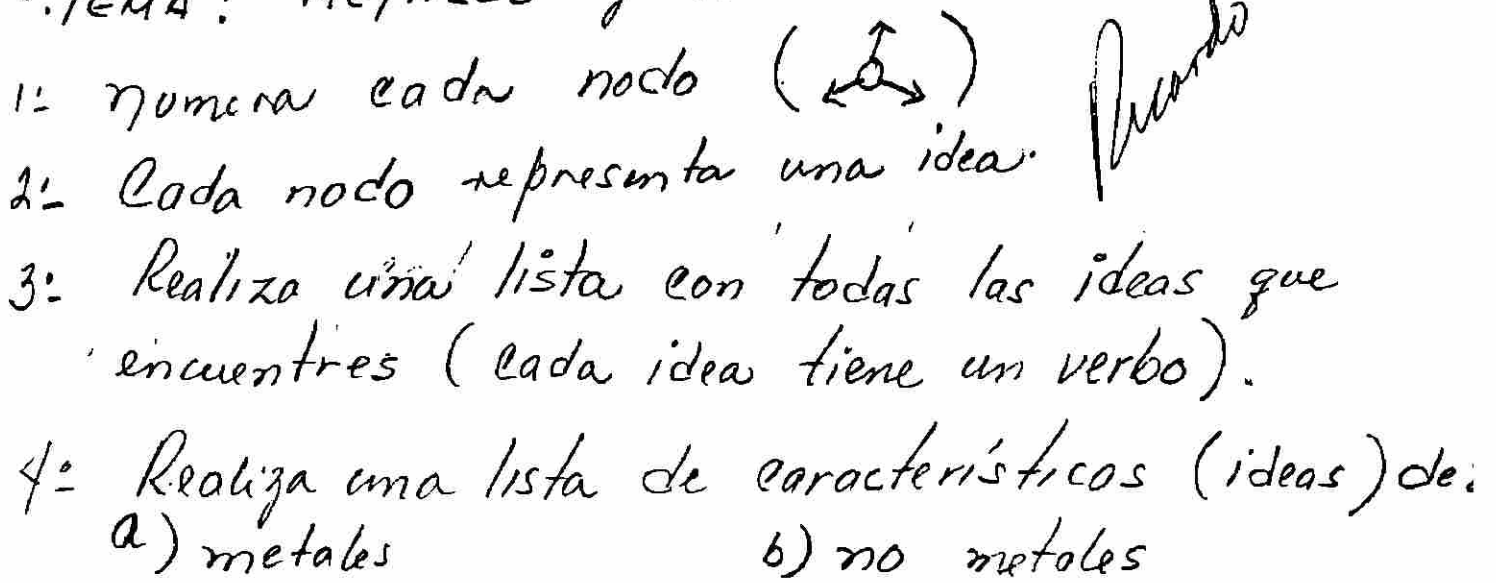 TEMA:
1:- numera cada nodo ( )
Ricardo
2:- Cada nodo representa una idea.
3:- Realiza una lista con todas las ideas que
encuentres (cada idea tiene un verbo).
4:- Realiza una lista de características (ideas) de:
a) metales b) no metales